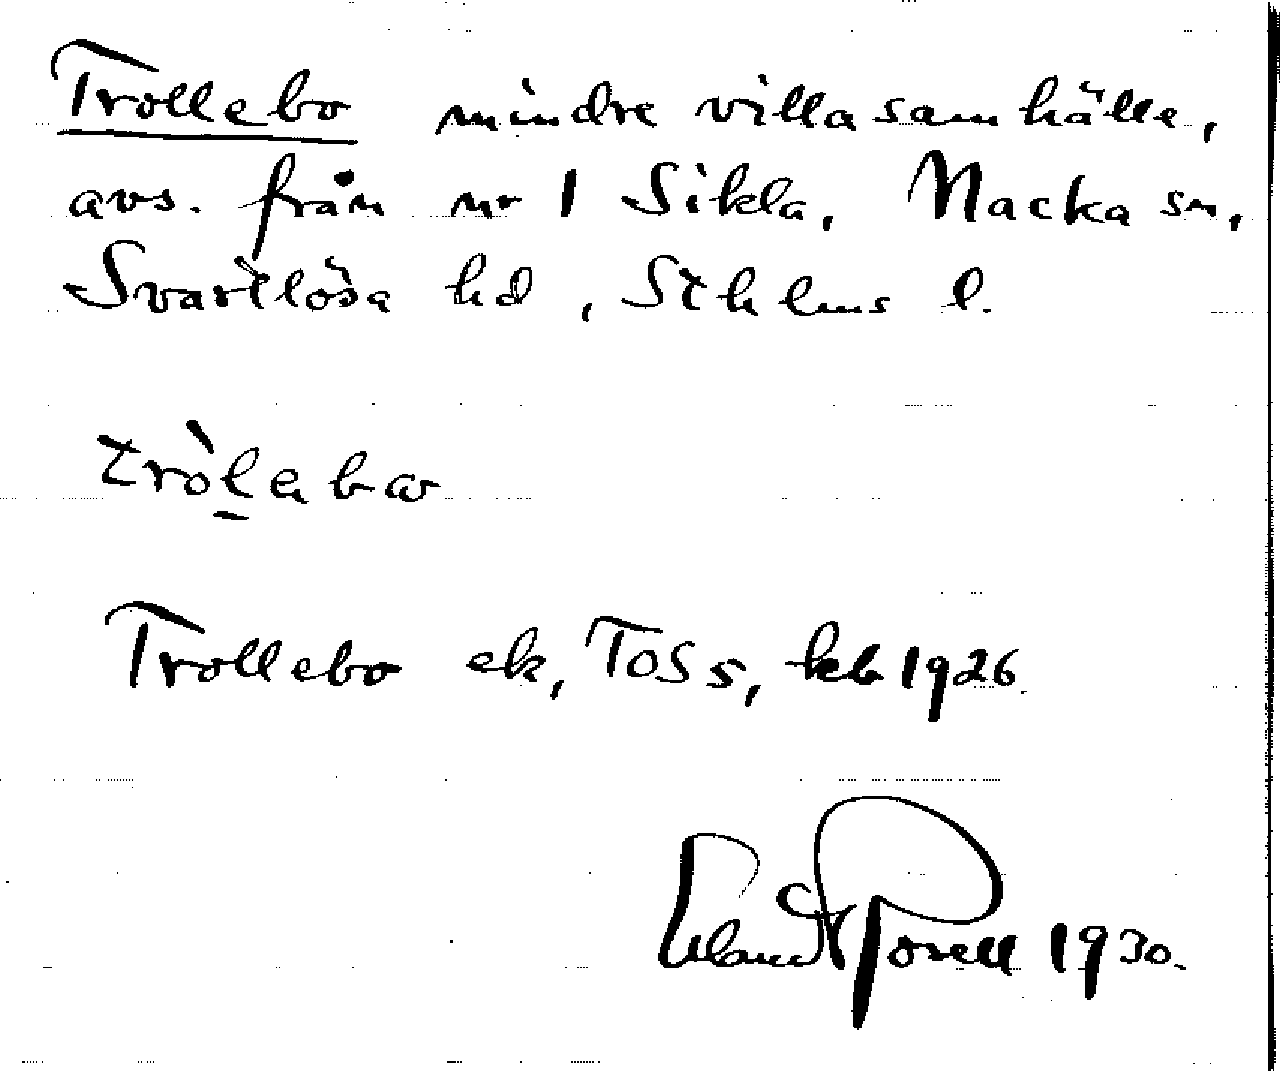 Trollebo mindre villasamhälle,
avs. från nr 1 Sikla, Nacka sn,
Svartlösa hd, Sthlms l.
tròlabω
Trollebo ek, TOS 5, kb 1926.
Erland Rosell 1930.